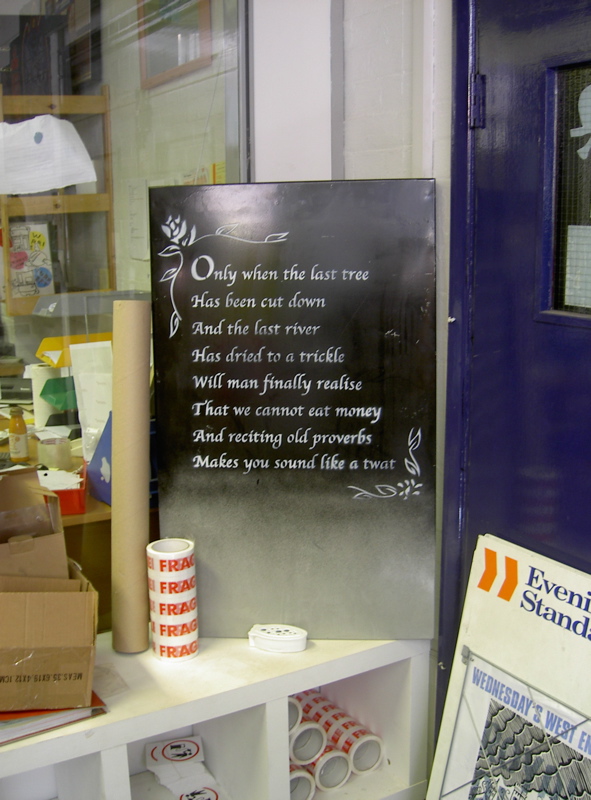 Only when the last tree
Has been cut down
And the last river
Has dried to a trickle
Will man finally realise
That we cannot eat money
And reciting old proverbs
Makes you sound like a twat
FRAG
FRAG
FRAG
FRAG
FRAG
Eveni
Standa
WEDNESDAY'S WEST EN